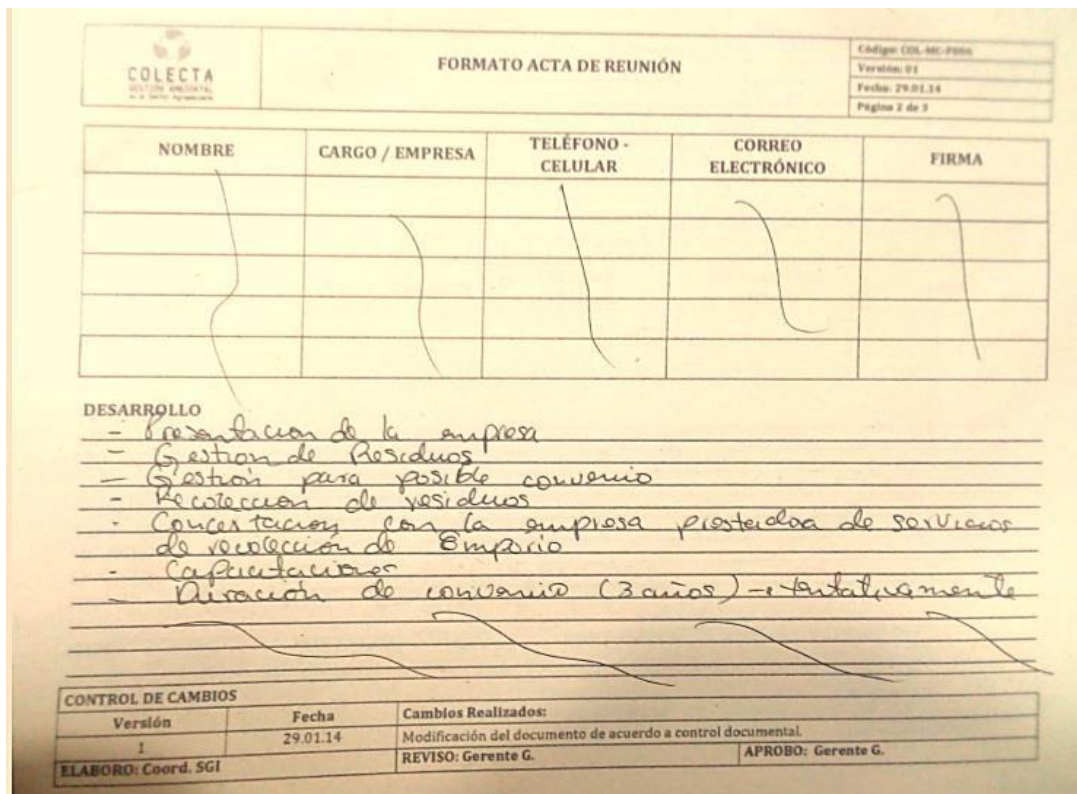 COLECTA
GESTIÓN AMBIENTAL
en el Sector Agropecuario
FORMATO ACTA DE REUNIÓN
Código: COL-MC-F006
Versión: 01
Fecha: 29.01.14
Página 2 de 3
NOMBRE
CARGO / EMPRESA
TELÉFONO - CELULAR
CORREO ELECTRÓNICO
FIRMA
DESARROLLO
- Presentacion de la empresa
- Gestion de Residuos
- Gestión para posible convenio
- Recoleccion de residuos
- Concertacion con la empresa prestadora de servicios
de recolección de Emporio
- Capacitaciones
- Duración de convenio (3 años) → tentativamente
CONTROL DE CAMBIOS
Versión Fecha Cambios Realizados:
1 29.01.14 Modificación del documento de acuerdo a control documental.
ELABORO: Coord. SGI REVISO: Gerente G. APROBO: Gerente G.